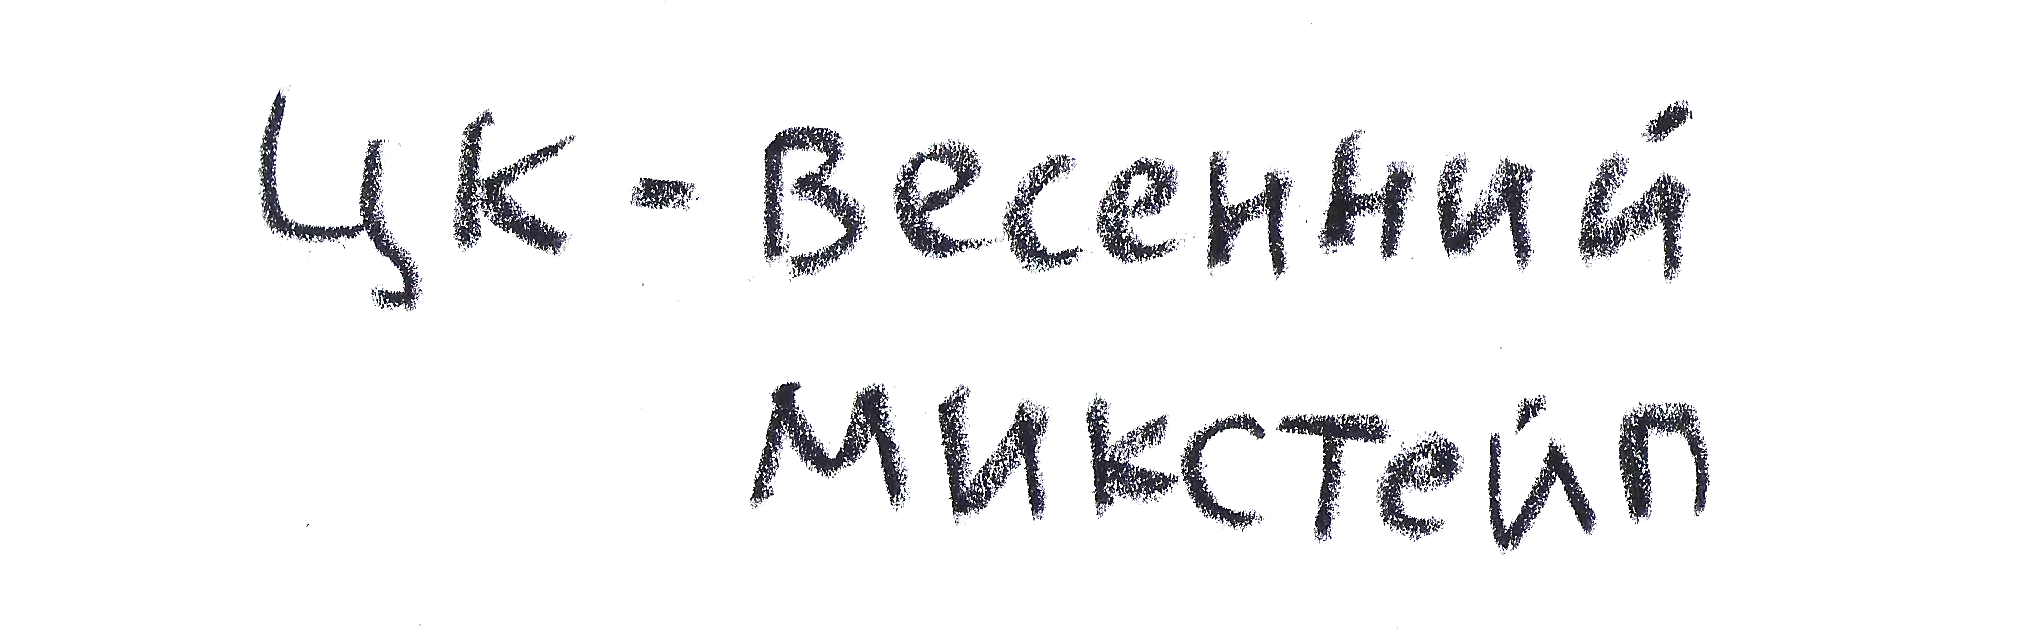 ЦК - Весенний
микстейп